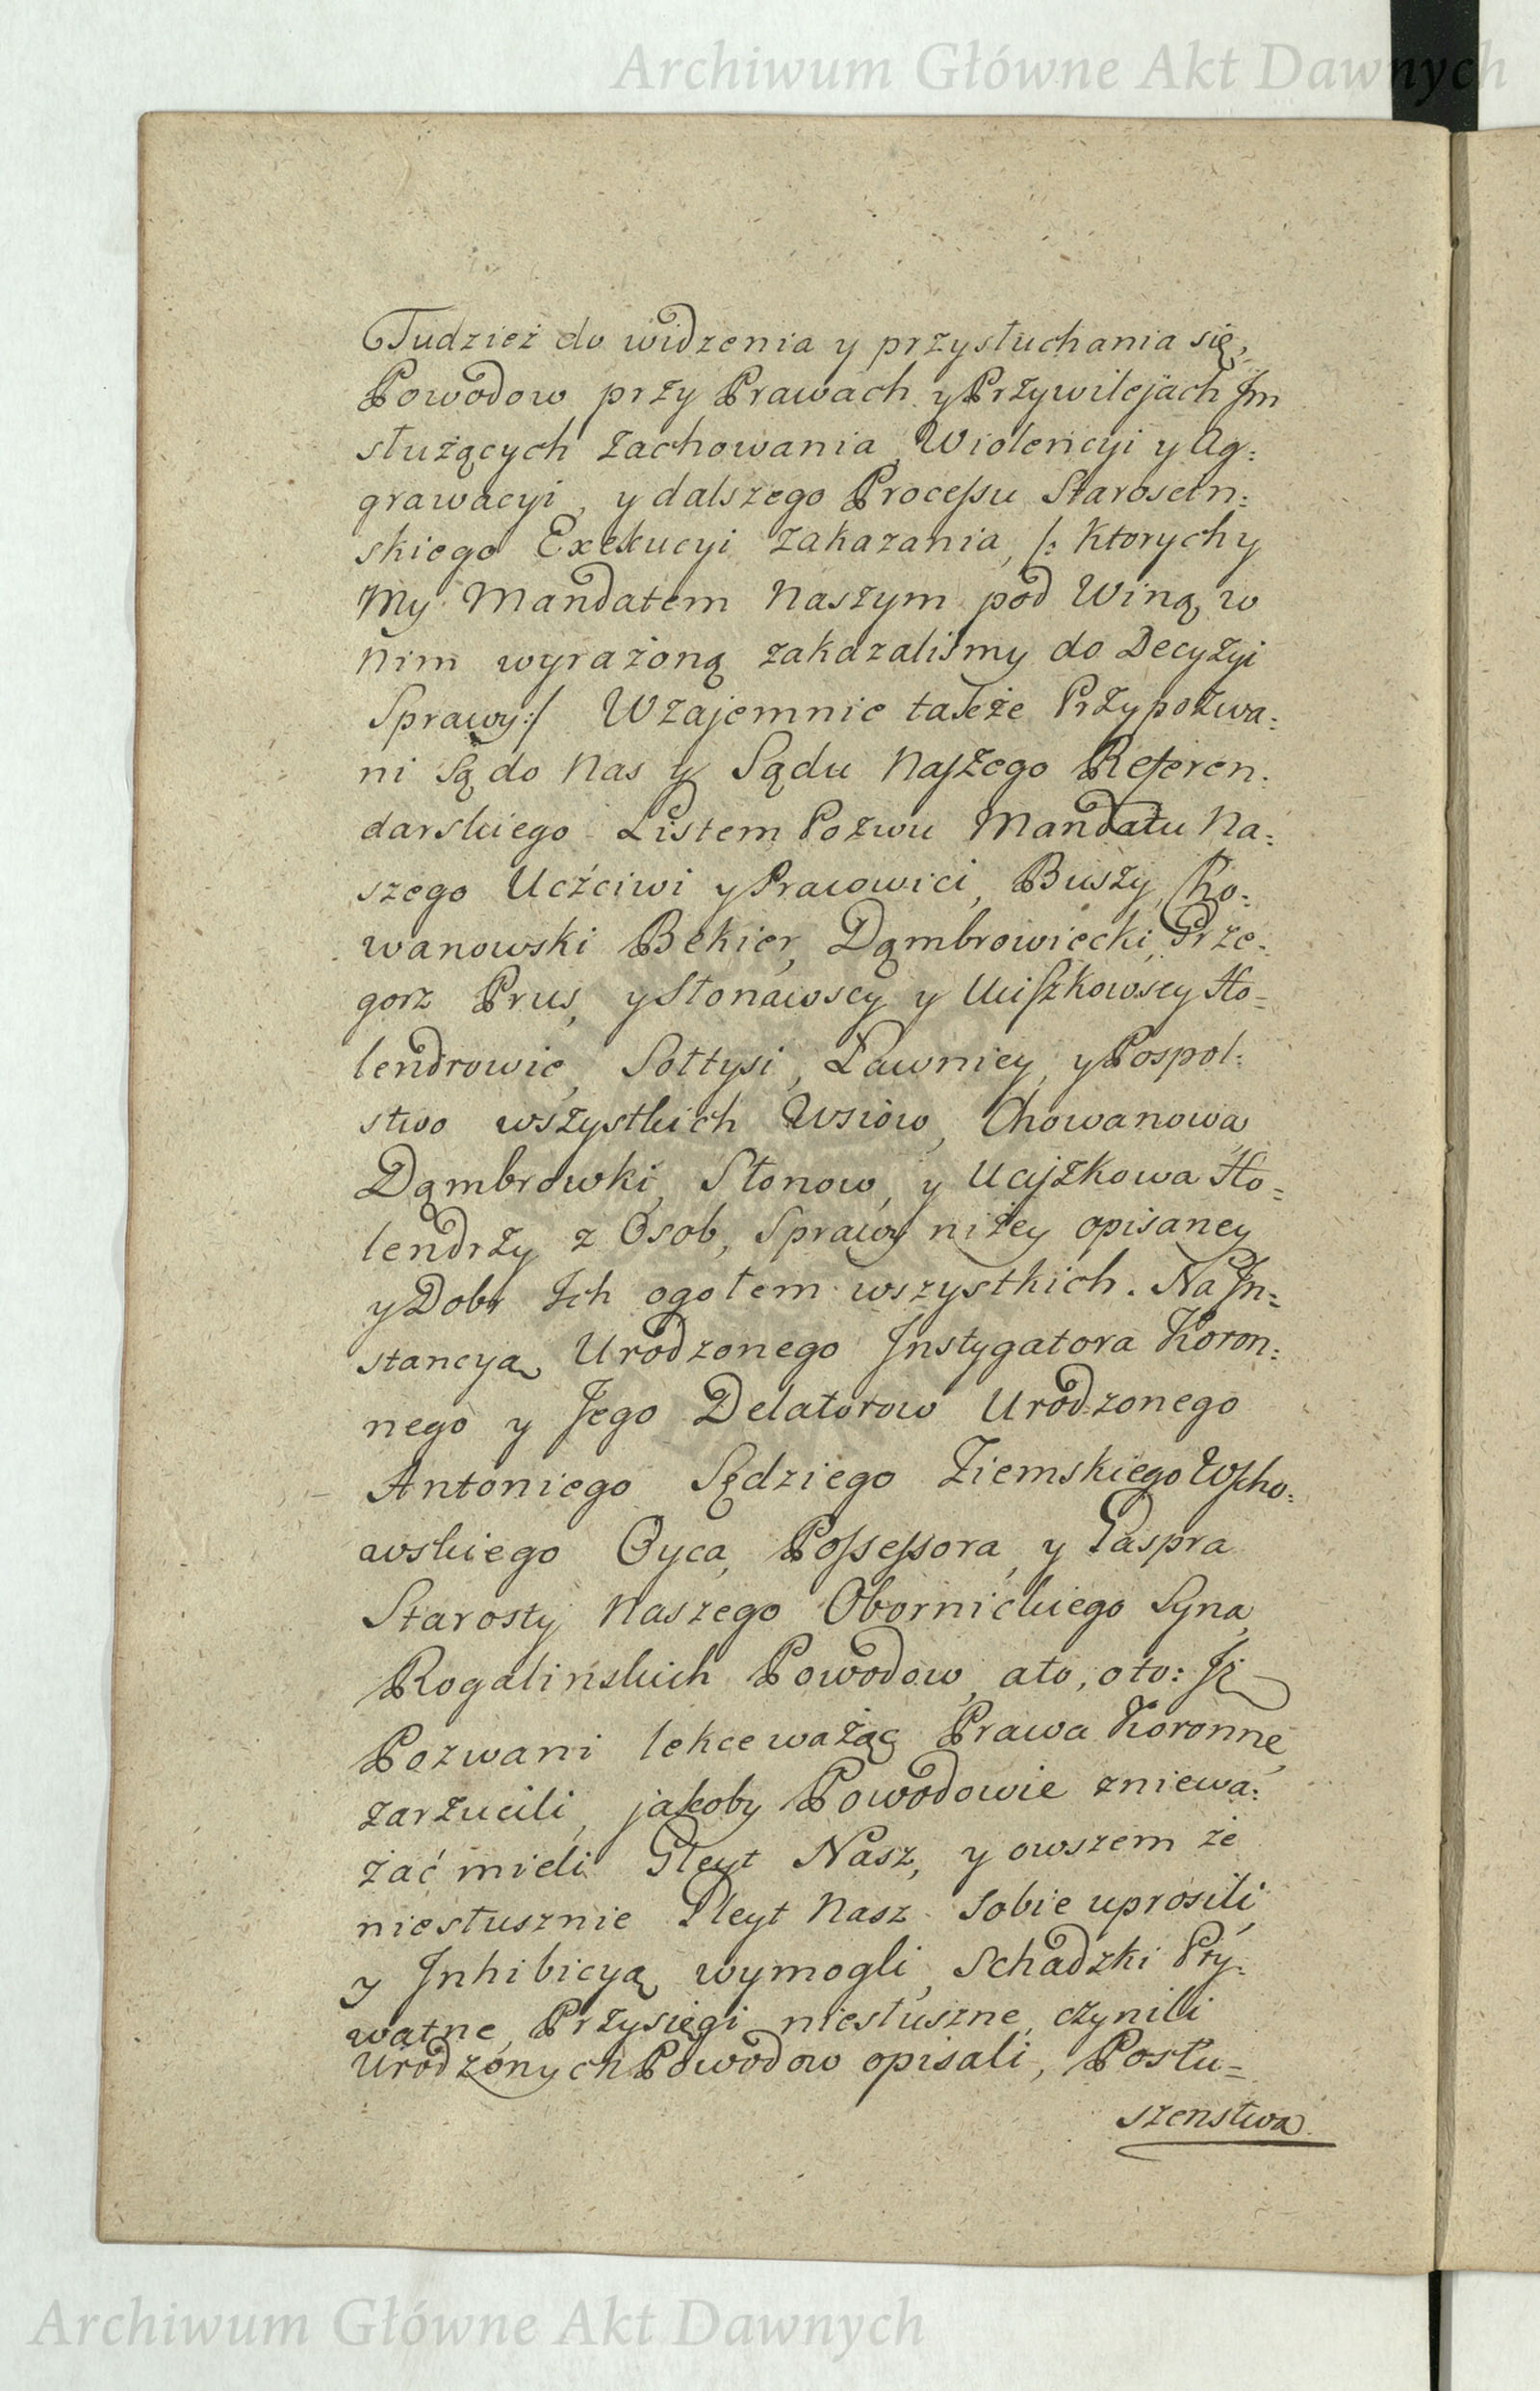 Archiwum Główne Akt Dawnych
Tudzież do widzenia y przysłuchania się,
Powodow przy Prawach y Przywilejach Jm
służących zachowania, Wiolencyi y Ag:
grawacyi, y dalszego Processu Starościn:
skiego Exekucyi zakazania, /: Ktorychy
My Mandatem Naszym pod Winą w
Nim wyrażoną zakazaliśmy do Decyzyi
Sprawy:/ Wzajemnie także Przypozwa:
ni są do Nas y Sądu Naszego Referen:
darskiego Listem Pozwu Mandatu Na:
szego Uczciwi y Pracowici, Buszy,
wanowski Bekier, Dąmbrowiecki, Grze:
gorz Prus, y Stonawscy y Uciszkowscy Ho=
lendrowie, Sołtysi, Ławnicy, y Pospol:
stwo wszystkich Wsiow, Chowanowa
Dąmbrowki, Stonow, y Uciszkowa Ho=
lendrzy z Osob, Sprawy niżey opisaney
y Dobr Ich ogołem wszystkich. Na Jn=
stancyą Urodzonego Jnstygatora Koron:
nego y Jego Delatorow Urodzonego
Antoniego Sędziego Ziemskiego Wscho:
wskiego Oyca, Possessora, y Gaspra
Starosty Naszego Obornickiego Syna,
Rogalińskich Powodow, ato, oto: Jż
Pozwani lekce ważąc Prawa Koronne,
zarzucili, jakoby Powodowie zniewa:
żać mieli Gleyt Nasz, y owszem że
niesłusznie Gleyt Nasz sobie uprosili,
y Jnhibicyą wymogli, Schadzki Pry:
watne, Przysięgi niesłuszne, czynili
Urodzonych Powodow opisali, Posłu=
szenstwa
Archiwum Główne Akt Dawnych